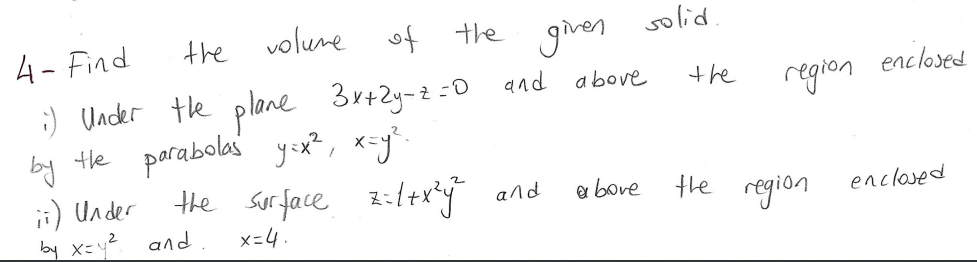 4- Find the volume of the given solid.
i) Under the plane 3x+2y-z=0 and above the region enclosed
by the parabolas y=x², x=y².
ii) Under the surface z=1+x²y² and above the region enclosed
by x=y² and x=4.